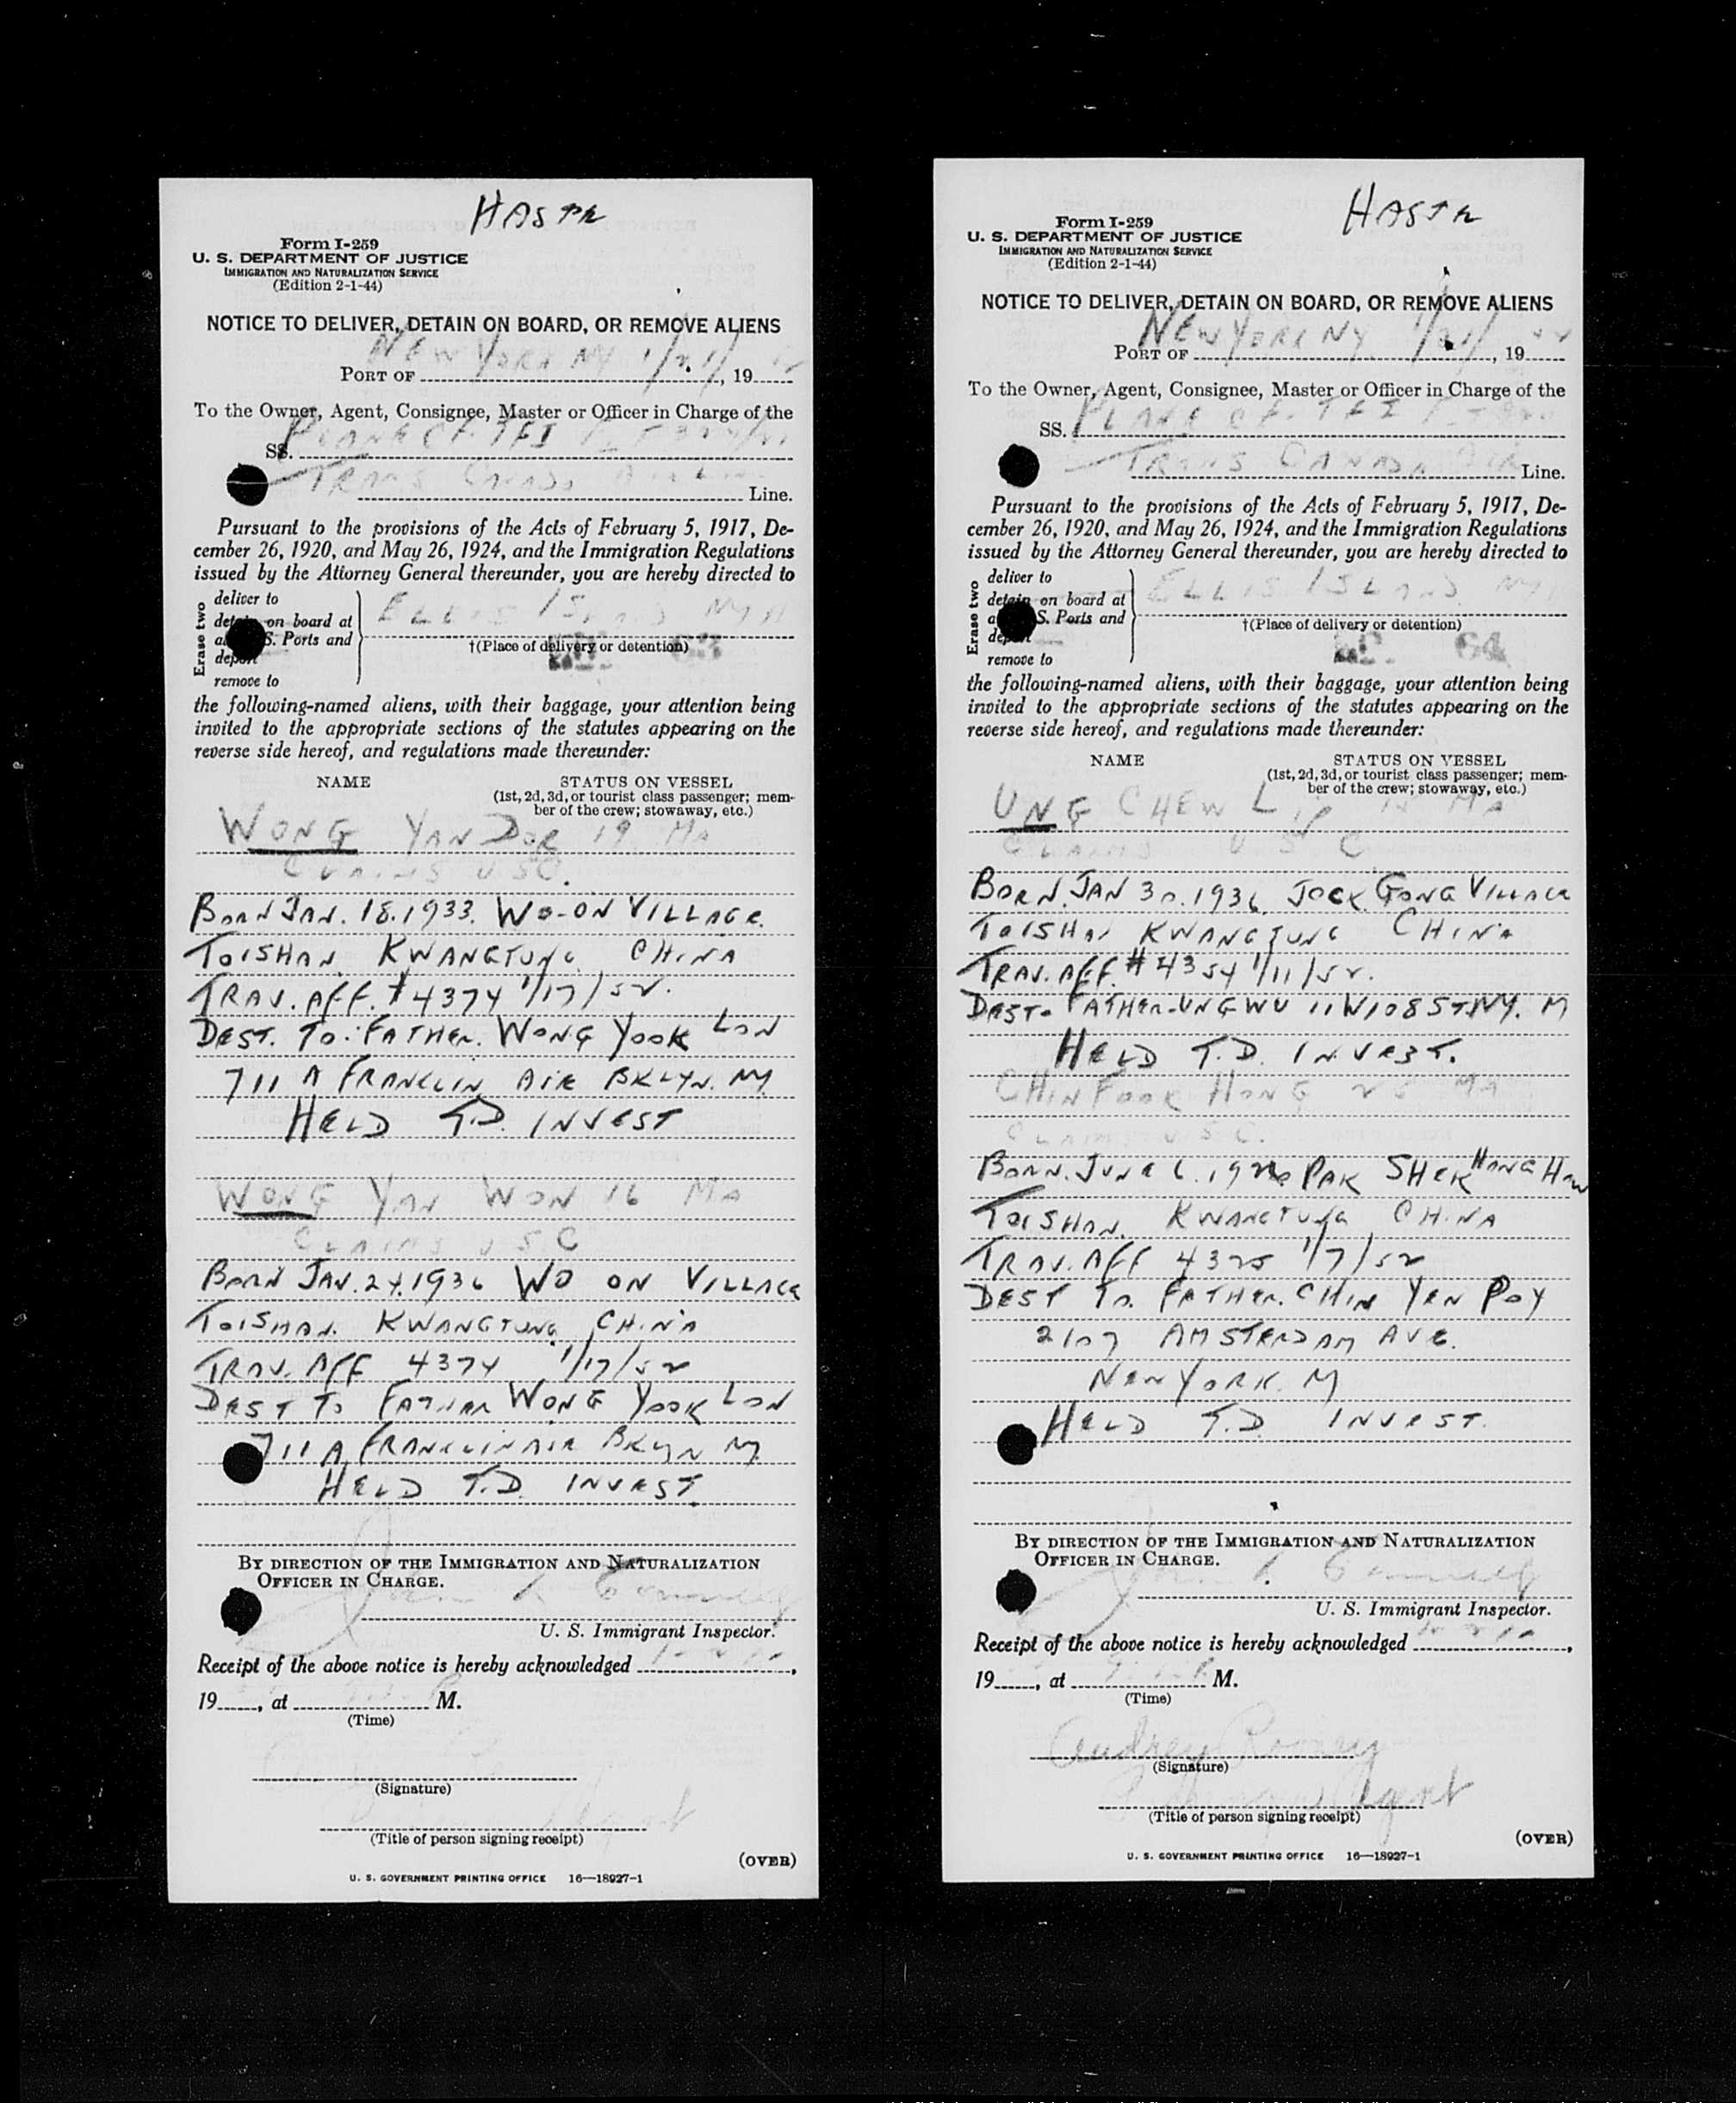 Form I-259
U. S. DEPARTMENT OF JUSTICE
IMMIGRATION AND NATURALIZATION SERVICE
(Edition 2-1-44)
NOTICE TO DELIVER, DETAIN ON BOARD, OR REMOVE ALIENS
NEW YORK NY 1/21/
PORT OF , 19
To the Owner, Agent, Consignee, Master or Officer in Charge of the
SS. PLANE CF. TFI
TRANS CANADA Line.
Pursuant to the provisions of the Acts of February 5, 1917, De-
cember 26, 1920, and May 26, 1924, and the Immigration Regulations
issued by the Attorney General thereunder, you are hereby directed to
Erase two
deliver to
detain on board at
S. Ports and
deport
remove to
ELLIS ISLAND NYH
†(Place of delivery or detention)
63
the following-named aliens, with their baggage, your attention being
invited to the appropriate sections of the statutes appearing on the
reverse side hereof, and regulations made thereunder:
NAME STATUS ON VESSEL
(1st, 2d, 3d, or tourist class passenger; mem-
ber of the crew; stowaway, etc.)
WONG YAN DOR 19 MA
CLAIMS USC.
BORN JAN. 18. 1933. WO-ON VILLAGE.
TOISHAN KWANGTUNG CHINA
TRAV. AFF. # 4374 1/17/52.
DEST. TO: FATHER. WONG YOOK LON
711 A FRANKLIN AVE BKLYN. NY
HELD T.D. INVEST
WONG YAN WON 16 MA
CLAIMS USC
BORN JAN. 24. 1936 WO ON VILLAGE
TOISHAN. KWANGTUNG CHINA
TRAV. AFF 4374 1/17/52
DEST TO FATHER WONG YOOK LON
711 A FRANKLIN AVE BKLYN NY
HELD T.D. INVEST.
BY DIRECTION OF THE IMMIGRATION AND NATURALIZATION
OFFICER IN CHARGE.
U. S. Immigrant Inspector.
Receipt of the above notice is hereby acknowledged ,
19 , at M.
(Time)
(Signature)
Agent
(Title of person signing receipt)
(OVER)
U. S. GOVERNMENT PRINTING OFFICE 16—18927-1
Form I-259
U. S. DEPARTMENT OF JUSTICE
IMMIGRATION AND NATURALIZATION SERVICE
(Edition 2-1-44)
NOTICE TO DELIVER, DETAIN ON BOARD, OR REMOVE ALIENS
NEW YORK NY 1/21/
PORT OF , 19
To the Owner, Agent, Consignee, Master or Officer in Charge of the
SS. PLANE CF. TFI
TRANS CANADA AIR Line.
Pursuant to the provisions of the Acts of February 5, 1917, De-
cember 26, 1920, and May 26, 1924, and the Immigration Regulations
issued by the Attorney General thereunder, you are hereby directed to
Erase two
deliver to
detain on board at
S. Ports and
deport
remove to
ELLIS ISLAND NYH
†(Place of delivery or detention)
64
the following-named aliens, with their baggage, your attention being
invited to the appropriate sections of the statutes appearing on the
reverse side hereof, and regulations made thereunder:
NAME STATUS ON VESSEL
(1st, 2d, 3d, or tourist class passenger; mem-
ber of the crew; stowaway, etc.)
UNG CHEW MA
CLAIMS USC
BORN. JAN 30. 1936. JOCK GONG VILLAGE
TOISHAN KWANGTUNG CHINA
TRAV. AFF. # 4354 1/11/52.
DEST- FATHER-UNG WU 11 W 108 ST. NY. NY
HELD T.D. INVEST.
CHIN FOOK HONG 25 MA
CLAIMS USC.
BORN. JUNE 6. 1926 PAK SHEK HANG HOW
TOISHAN. KWANGTUNG CHINA
TRAV. AFF 4325 1/7/52
DEST TO. FATHER. CHIN YEN POY
2107 AMSTERDAM AVE.
NEW YORK. NY
HELD T.D. INVEST.
BY DIRECTION OF THE IMMIGRATION AND NATURALIZATION
OFFICER IN CHARGE.
U. S. Immigrant Inspector.
Receipt of the above notice is hereby acknowledged ,
19 , at M.
(Time)
Audrey Rooney
(Signature)
Agent
(Title of person signing receipt)
(OVER)
U. S. GOVERNMENT PRINTING OFFICE 16—18927-1